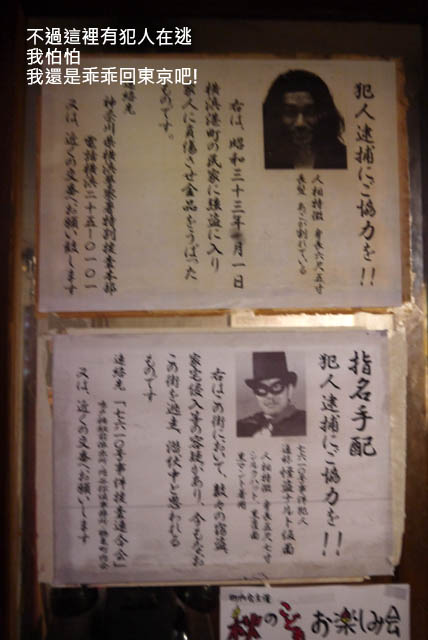 不過這裡有犯人在逃
我怕怕
我還是乖乖回東京吧!
犯人逮捕にご協力を!!
人相特徴 身長六尺五寸
長髪 あごが割れている
右は、昭和三十三年 月一日
横浜港町の民家に強盗に入り
家人に負傷させ金品をうばった
ものです。
連絡先
神奈川県横浜警察署特別捜査本部
電話横浜二十五-〇一〇一
又は、近くの交番へお願い致します
指名手配
犯人逮捕にご協力を!!
七六一〇号事件犯人
通称 怪盗ナルト仮面
人相特徴 身長五尺七寸
シルクハット、黒覆面
黒マント着用
右はこの街において、数々の宿盗、
家宅侵入案の容疑があり、今もなお
この街を逃走、潜伏中と思われる
ものです
連絡先 「七六一〇号事件捜査連合会」
又は、近くの交番へお願いします
町内会主催
秋の
お楽しみ会